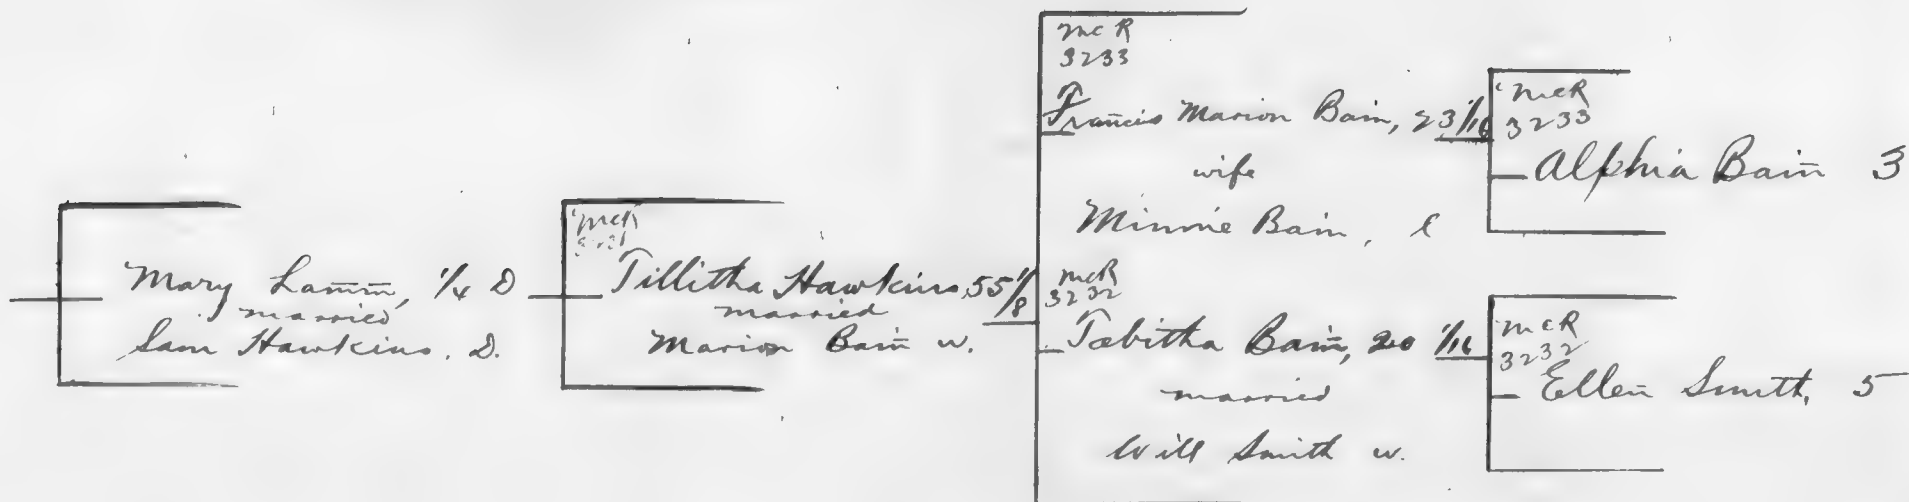 Mary Lamm, 1/4 D
married
Sam Hawkins. D.
McR
Tillitha Hawkins, 55 1/8
married
Marion Bain w.
McR
3233
Francis Marion Bain, 23 1/16
wife
Minnie Bain,
McR
3232
Tabitha Bain, 20 1/16
married
Will Smith w.
McR
3233
Alphia Bain 3
McR
3232
Ellen Smith, 5